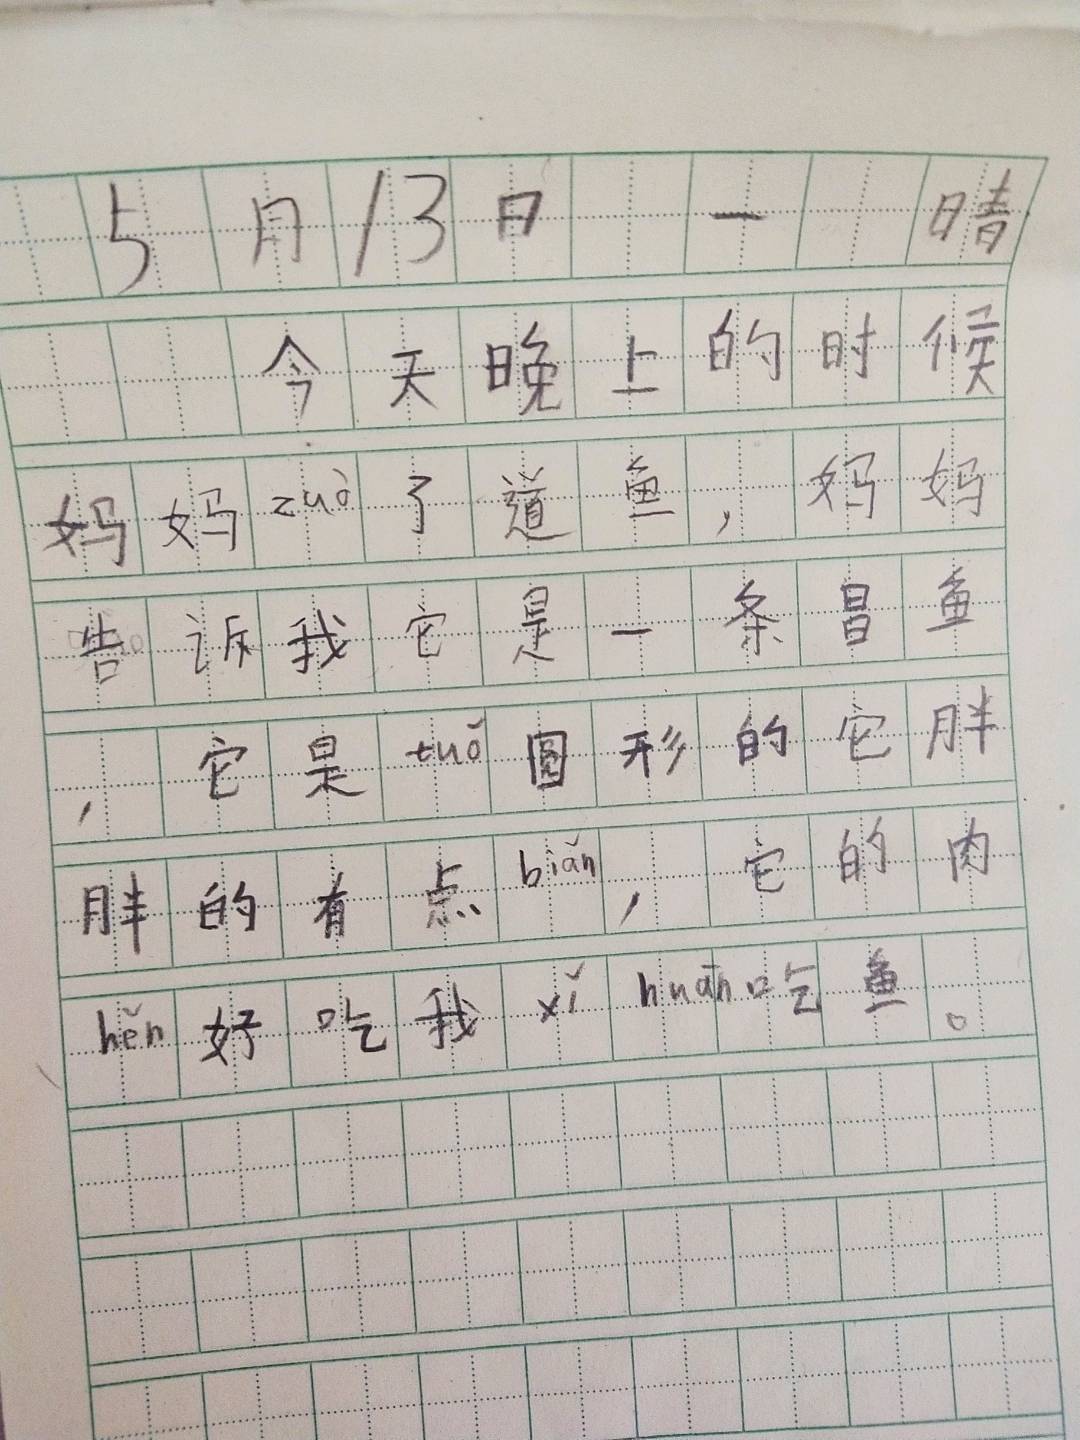 5月13日 一 晴
今天晚上的时候
妈妈zuò了道鱼，妈妈
告诉我它是一条昌鱼
，它是tuǒ圆形的它胖
胖的有点biǎn，它的肉
hěn好吃我xǐhuān吃鱼。